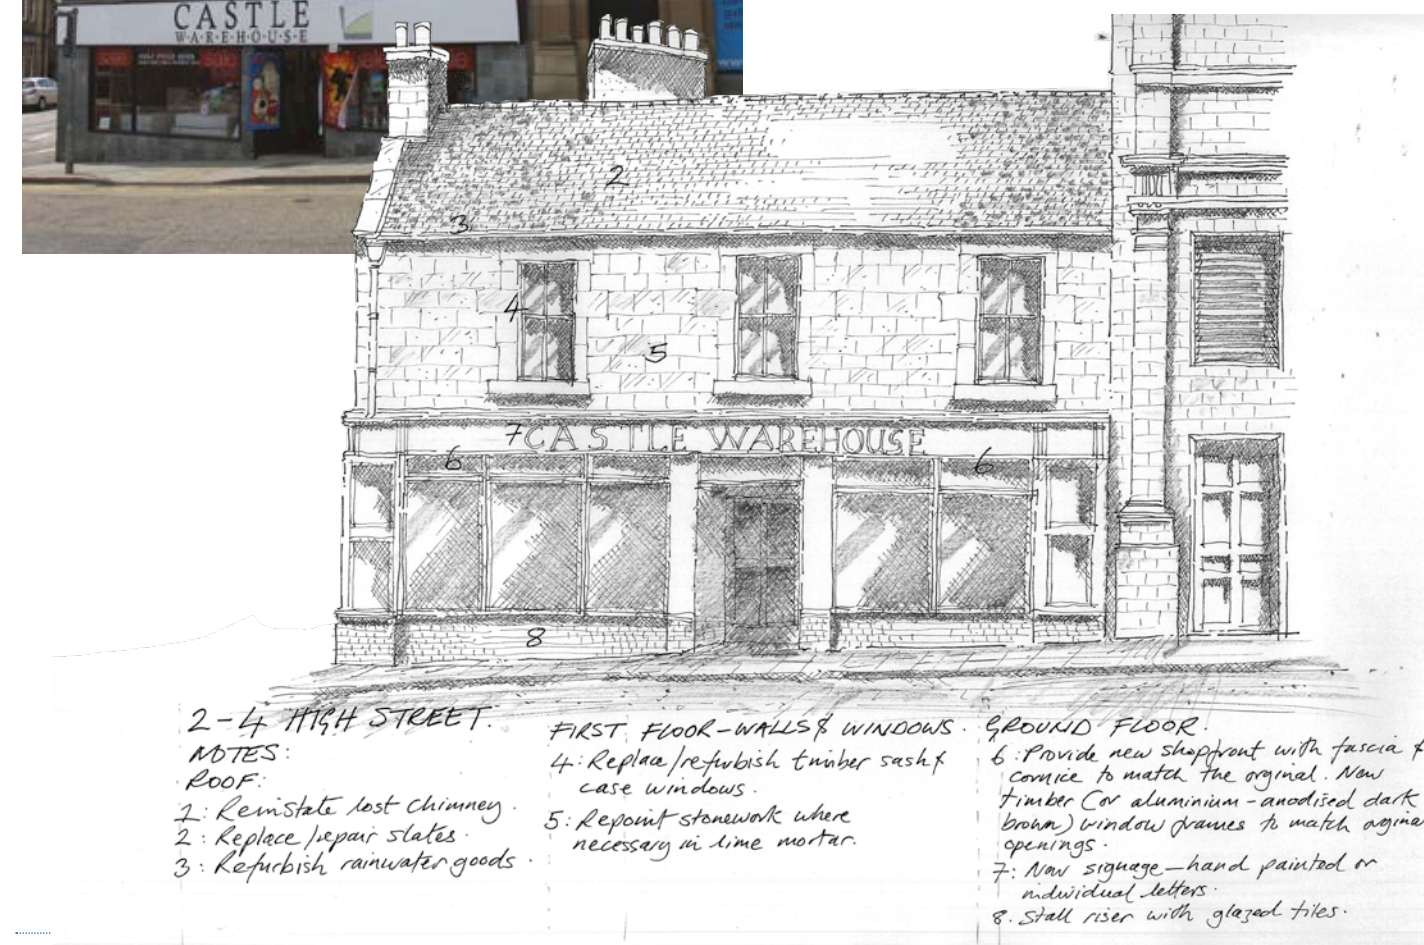 CASTLE
W·A·R·E·H·O·U·S·E
sale
sale
www.
2
3
4
5
7 CASTLE WAREHOUSE
6
6
8
2-4 HIGH STREET.
NOTES:
ROOF:
1: Reinstate lost chimney.
2: Replace/repair slates.
3: Refurbish rainwater goods.
FIRST FLOOR - WALLS & WINDOWS.
4: Replace/refurbish timber sash &
case windows.
5: Repoint stonework where
necessary in lime mortar.
GROUND FLOOR.
6: Provide new shopfront with fascia &
cornice to match the orginal. New
timber (or aluminium - anodised dark
brown) window frames to match orgina
openings.
7: New signage - hand painted or
individual letters.
8. Stall riser with glazed tiles.